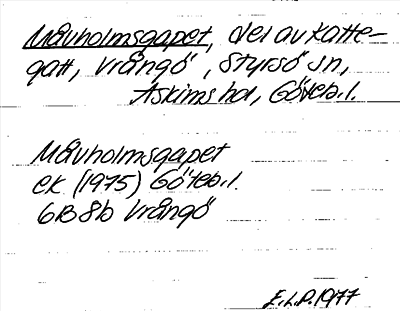 Måvholmsgapet, del av Katte-
gatt, Vrångö, Styrsö sn,
Askims hd, Göteb. l.
Måvholmsgapet
ek (1975) Göteb. l.
6B 8b Vrångö
E.L.P. 1977